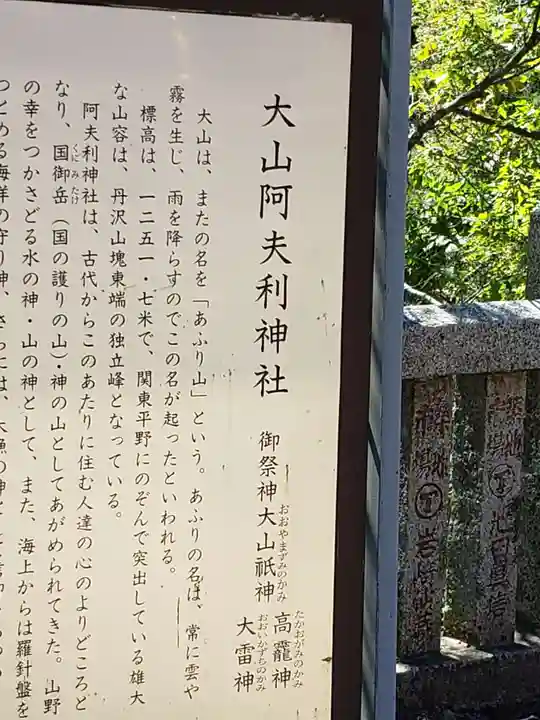 大山阿夫利神社
御祭神大山祇神
おおやまずみのかみ
高龗神
たかおがみのかみ
大雷神
おおいかずちのかみ
大山は、またの名を「あふり山」という。あふりの名は、常に雲や
霧を生じ、雨を降らすのでこの名が起ったといわれる。
標高は、一二五一・七米で、関東平野にのぞんで突出している雄大
な山容は、丹沢山塊東端の独立峰となっている。
阿夫利神社は、古代からこのあたりに住む人達の心のよりどころと
なり、国御岳（国の護りの山）・神の山としてあがめられてきた。山野
くにみたけ
の幸をつかさどる水の神・山の神として、また、海上からは羅針盤を
つとめる海洋の守り神、さらには、大漁の神として